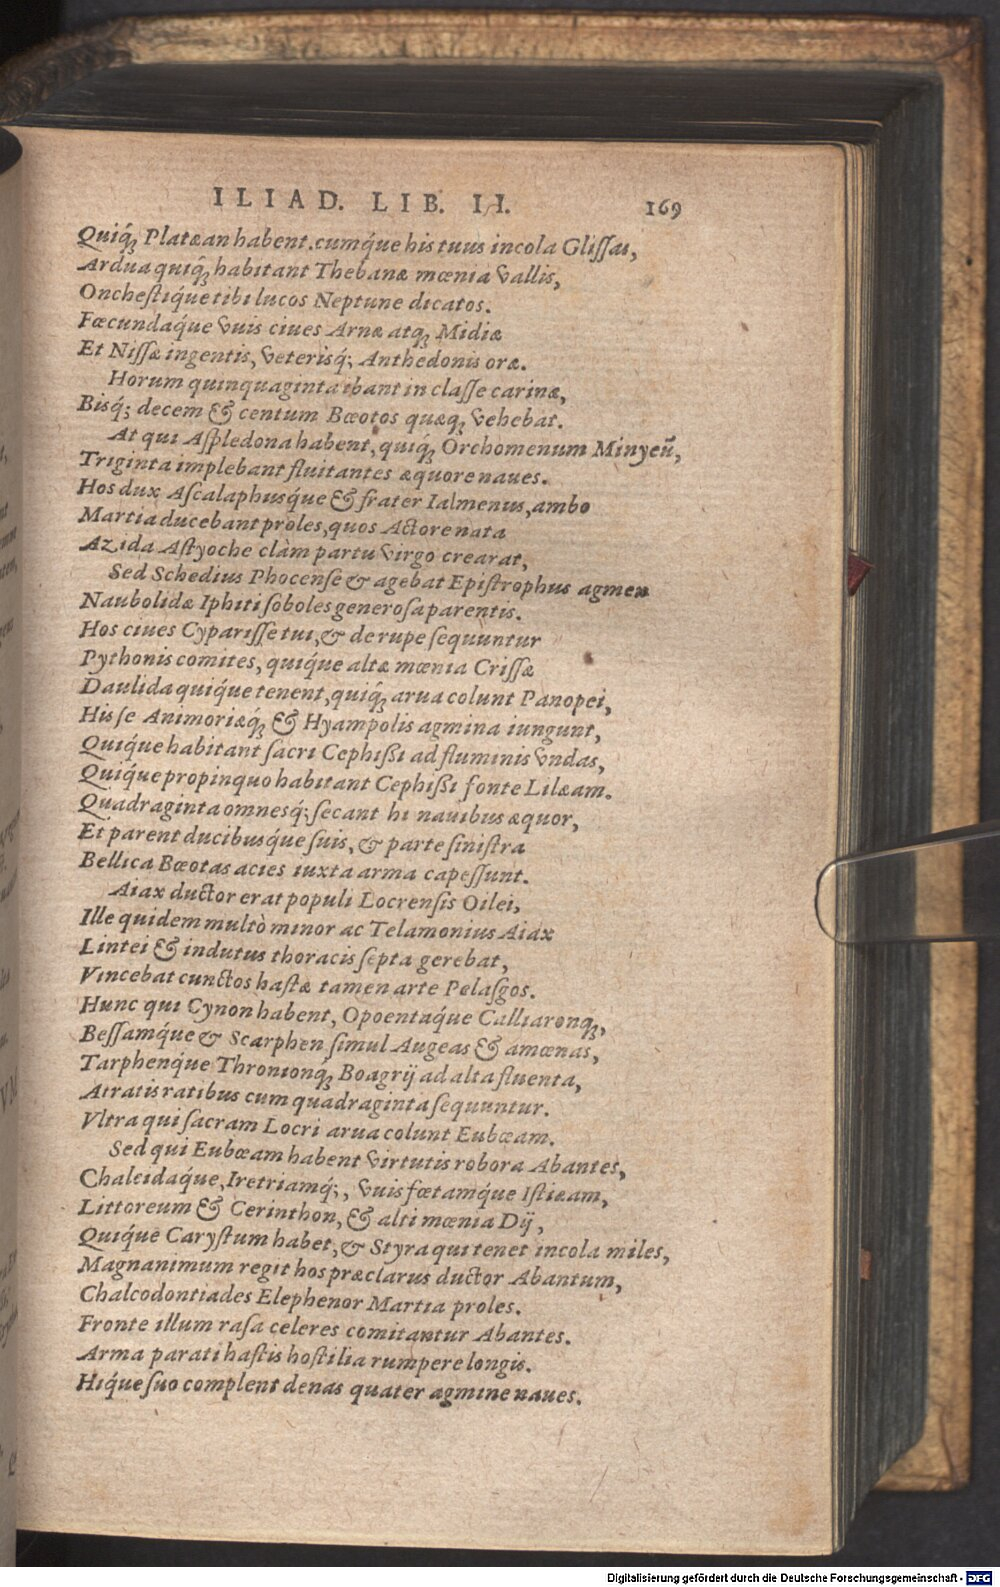 ILIAD. LIB. II. 169
Quiq́ꝫ Platæan habent. cumq́ue his tuus incola Glißau,
Ardua quiq́ꝫ habitant Thebanæ mœnia vallis,
Onchestiq́ue tibi lucos Neptune dicatos.
Fœcundaq́ue vuis ciues Arnæ atqꝫ Midiæ
Et Nißæ ingentis, veterisq́; Anthedonis oræ.
Horum quinquaginta ibant in classe carinæ,
Bisq́; decem & centum Bœotos quæqꝫ vehebat.
At qui Aspledona habent, quiq́ꝫ Orchomenum Minyeū,
Triginta implebant fluitantes æquore naues.
Hos dux Ascalaphusq́ue & frater Ialmenus, ambo
Martia ducebant proles, quos Actore nata
Azida Astyoche clàm partu virgo crearat,
Sed Schedius Phocense & agebat Epistrophus agmen
Naubolidæ Iphiti soboles generosa parentis.
Hos ciues Cyparisse tui, & de rupe sequuntur
Pythonis comites, quiq́ue altæ mœnia Crissæ
Daulida quiq́ue tenent, quiq́ꝫ arua colunt Panopei,
His se Animoriæq́ꝫ & Hyampolis agmina iungunt,
Quiq́ue habitant sacri Cephißi ad fluminis vndas,
Quiq́ue propinquo habitant Cephißi fonte Lilæam.
Quadraginta omnesq́; secant hi nauibus æquor,
Et parent ducibusq́ue suis, & parte sinistra
Bellica Bœotas acies iuxta arma capessunt.
Aiax ductor erat populi Locrensis Oilei,
Ille quidem multò minor ac Telamonius Aiax
Lintei & indutus thoracis septa gerebat,
Vincebat cunctos hastæ tamen arte Pelasgos.
Hunc qui Cynon habent, Opoentaq́ue Calliaronqꝫ,
Bessamq́ue & Scarphen simul Augeas & amœnas,
Tarphenq́ue Thronionq́ꝫ Boagrij ad alta fluenta,
Atratis ratibus cum quadraginta sequuntur.
Vltra qui sacram Locri arua colunt Eubœam.
Sed qui Eubœam habent virtutis robora Abantes,
Chalcidaq́ue, Iretriamq́;, vuis fœtamq́ue Istiæam,
Littoreum & Cerinthon, & alti mœnia Dij,
Quiq́ue Carystum habet, & Styra qui tenet incola miles,
Magnanimum regit hos præclarus ductor Abantum,
Chalcodontiades Elephenor Martia proles.
Fronte illum rasa celeres comitantur Abantes.
Arma parati hastis hostilia rumpere longis.
Hiq́ue suo complent denas quater agmine naues.
Digitalisierung gefördert durch die Deutsche Forschungsgemeinschaft - DFG